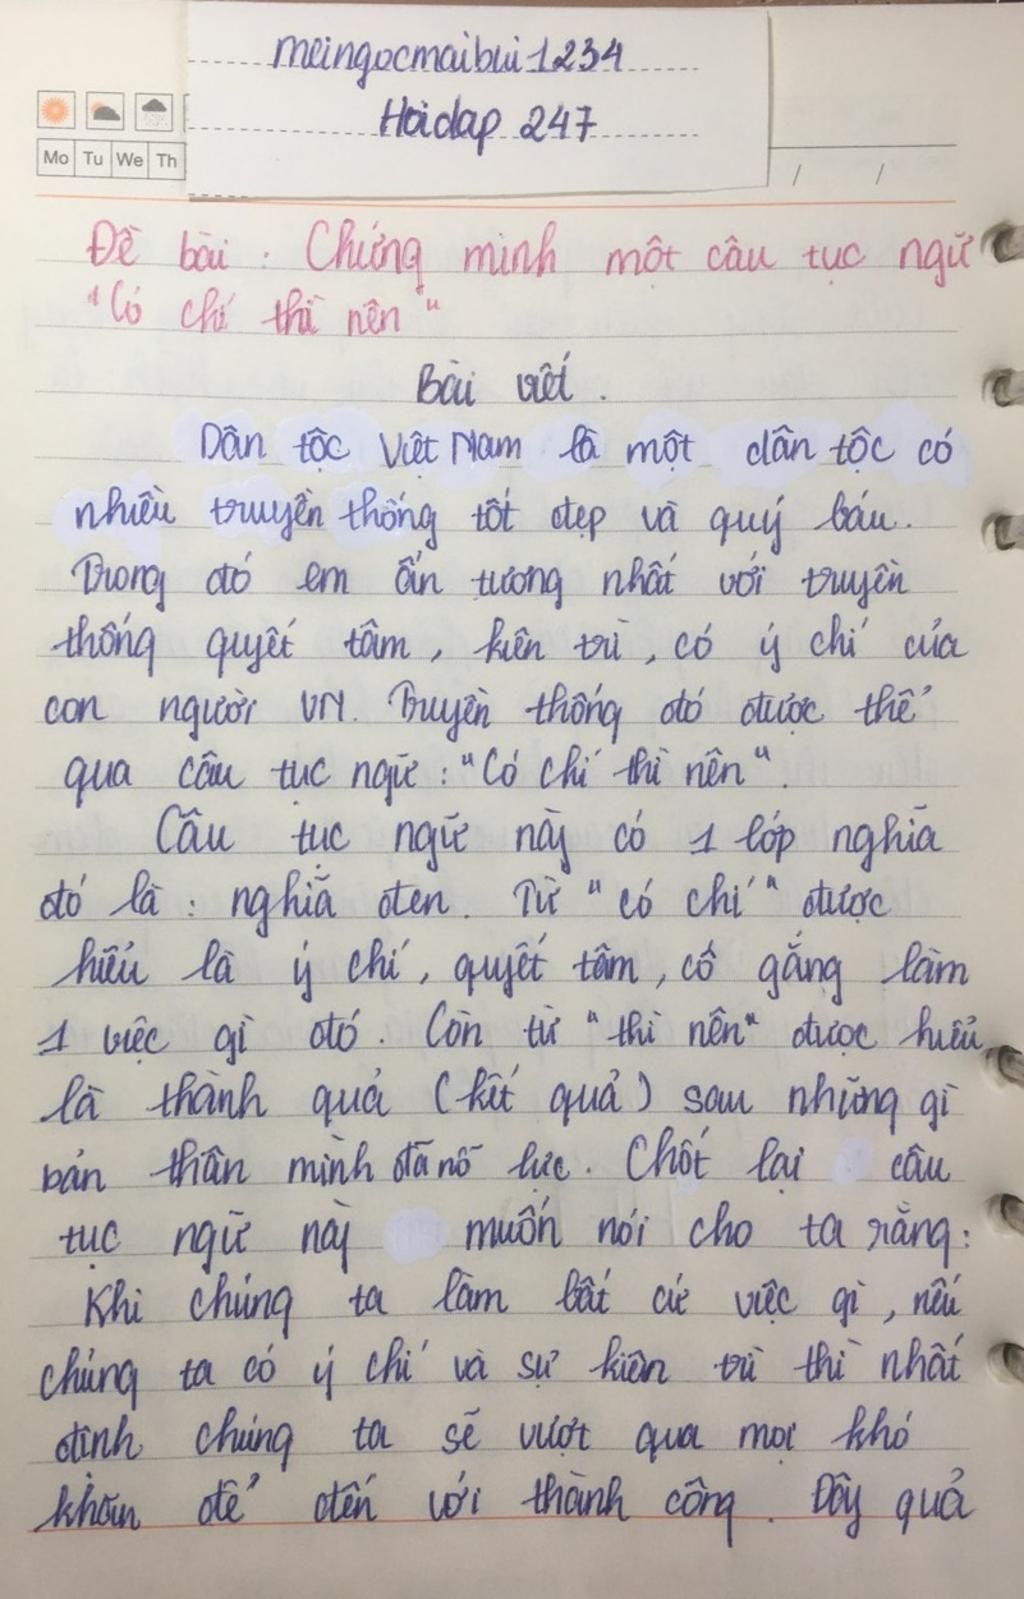 meingocmaibui1234
Hoidap 247
Mo Tu We Th
/ /
Đề bài : Chứng minh một câu tục ngữ
"Có chí thì nên"
Bài viết.
Dân tộc Việt Nam là một dân tộc có
nhiều truyền thống tốt đẹp và quý báu.
Trong đó em ấn tương nhất với truyền
thống quyết tâm, kiên trì, có ý chí của
con người VN. Truyền thống đó được thể
qua câu tục ngữ : "Có chí thì nên".
Câu tục ngữ này có 1 lớp nghĩa
đó là : nghĩa đen. Từ "có chí" được
hiểu là ý chí, quyết tâm, cố gắng làm
1 việc gì đó. Còn từ "thì nên" được hiểu
là thành quả (kết quả) sau những gì
bản thân mình đã nỗ lực. Chốt lại câu
tục ngữ này muốn nói cho ta rằng:
Khi chúng ta làm bất cứ việc gì, nếu
chúng ta có ý chí và sự kiên trì thì nhất
định chúng ta sẽ vượt qua mọi khó
khăn để đến với thành công. Đây quả